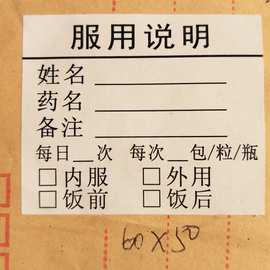 服用说明
姓名
药名
备注
每日__次 每次__包/粒/瓶
□内服 □外用
□饭前 □饭后
60×50